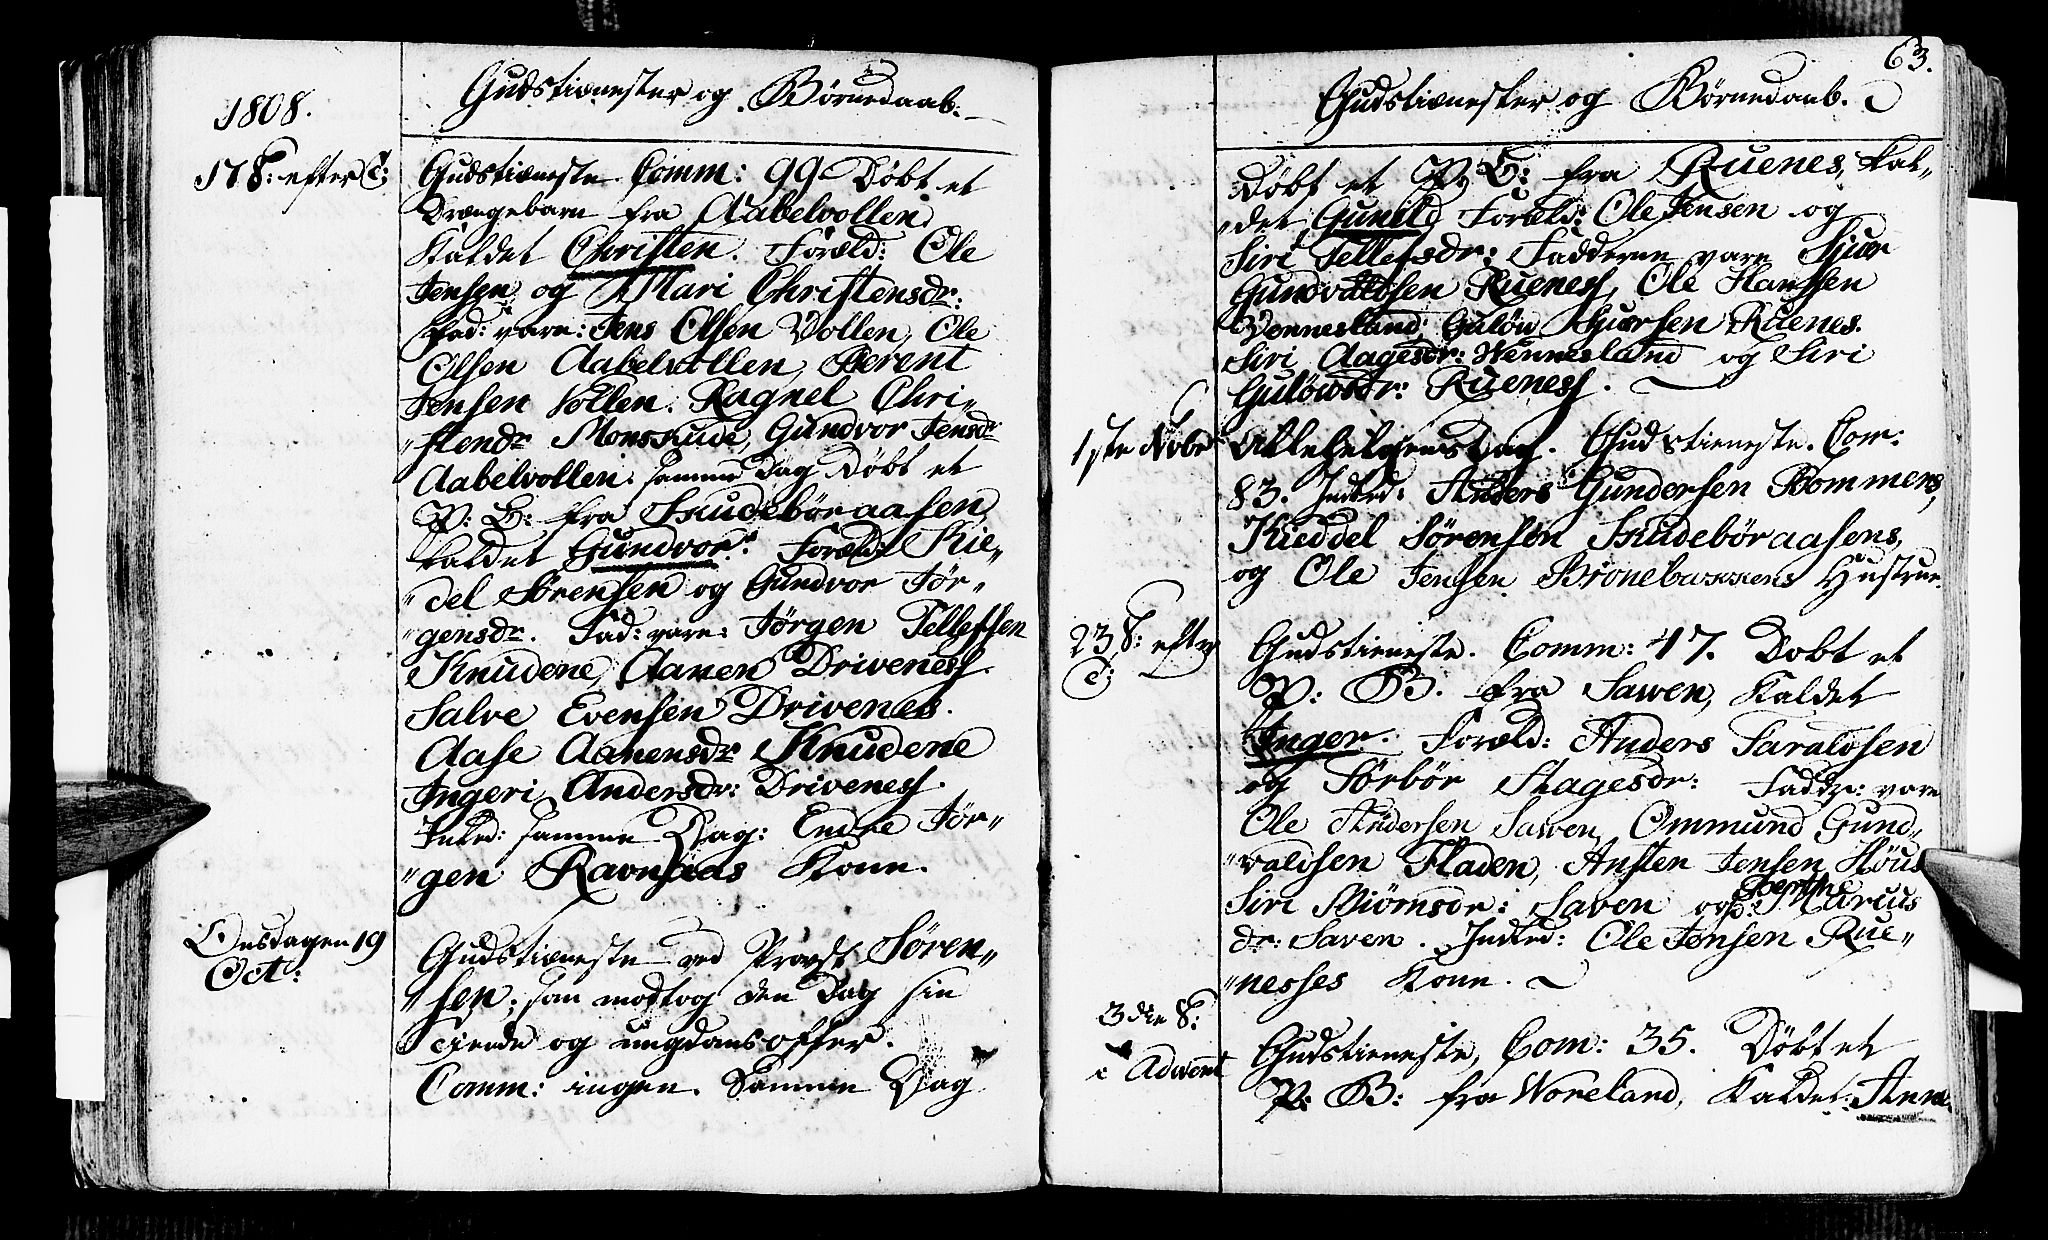 1808.
Gudstienester og Børnedaab.
17 S: efter T:
Gudstieneste Comm: 99. Døbt et
Drængebarn fra Aabelvollen
Kaldet Christen. Foræld: Ole
Jensen og Mari Christensdr:
Fad: vare: Jens Olsen Vollen, Ole
Olsen Aabelvollen, Berent
Jensen Vollen. Ragnel Chri„
„stendr Monskude, Gundvor Jensdr
Aabelvollen. samme Dag Døbt et
P: B: fra Skudebøraasen
kaldet Gundvor. Foræld: Kie„
„del Sørensen og Gundvor Jør„
„gensdr. Fad: vare: Jørgen Tellefsen
Knudene, Aanen Drivenes.
Salve Evensen Drivenes.
Aase Aanensdr Knudene
Ingeri Andersdr: Drivenes.
Inled: samme Dag: Endre Jør„
„gen Ravnaas Kone.
Onsdagen 19
Oct:
Gudstieneste ved Provst Søren„
„sen; som modtog den Dag sin
Tiende og ungdoms offer.
Comm: ingen. Samme Dag
63.
Gudstienester og Børnedaab.
Døbt et P. B: fra Ruenes, kal„
„det Gunild Foræld: Ole Jensen og
Siri Tellefsdr: Fadderne vare Siur
Gundvaldsen Ruenes, Ole Hansen
Vennesland Guløv Siursen Ruenes.
Siri Aagesdr: Wennesland og Siri
Guløwsdr: Ruenes.
1ste Nobr
Allehelgensdag. Gudstieneste. Com:
83. Indled: Anders Gundersen Bommens,
Kieddel Sørensen Skudebøraasens,
og Ole Jensen Bronebakkens Hustrue.
23 S: efter
T:
Gudstieneste. Comm: 47. Døbt et
P: B. fra Sawen, Kaldet
Inger. Foræld: Anders Taraldsen
og Sørbør Aagesdr: Faddre: vare
Ole Andersen Sawen, Ommund Gund„
„valdsen Fladen, Ansten Jensen Høus
Siri Biørnsdr: Saven og Berthe Marcus
dr: Saven. Indled: Ole Jensen Rue„
„nesses Kone.
3die S:
i Adwent
Gudstieneste, Com: 35. Døbt et
P: B: fra Woreland, Kaldet: Anne.